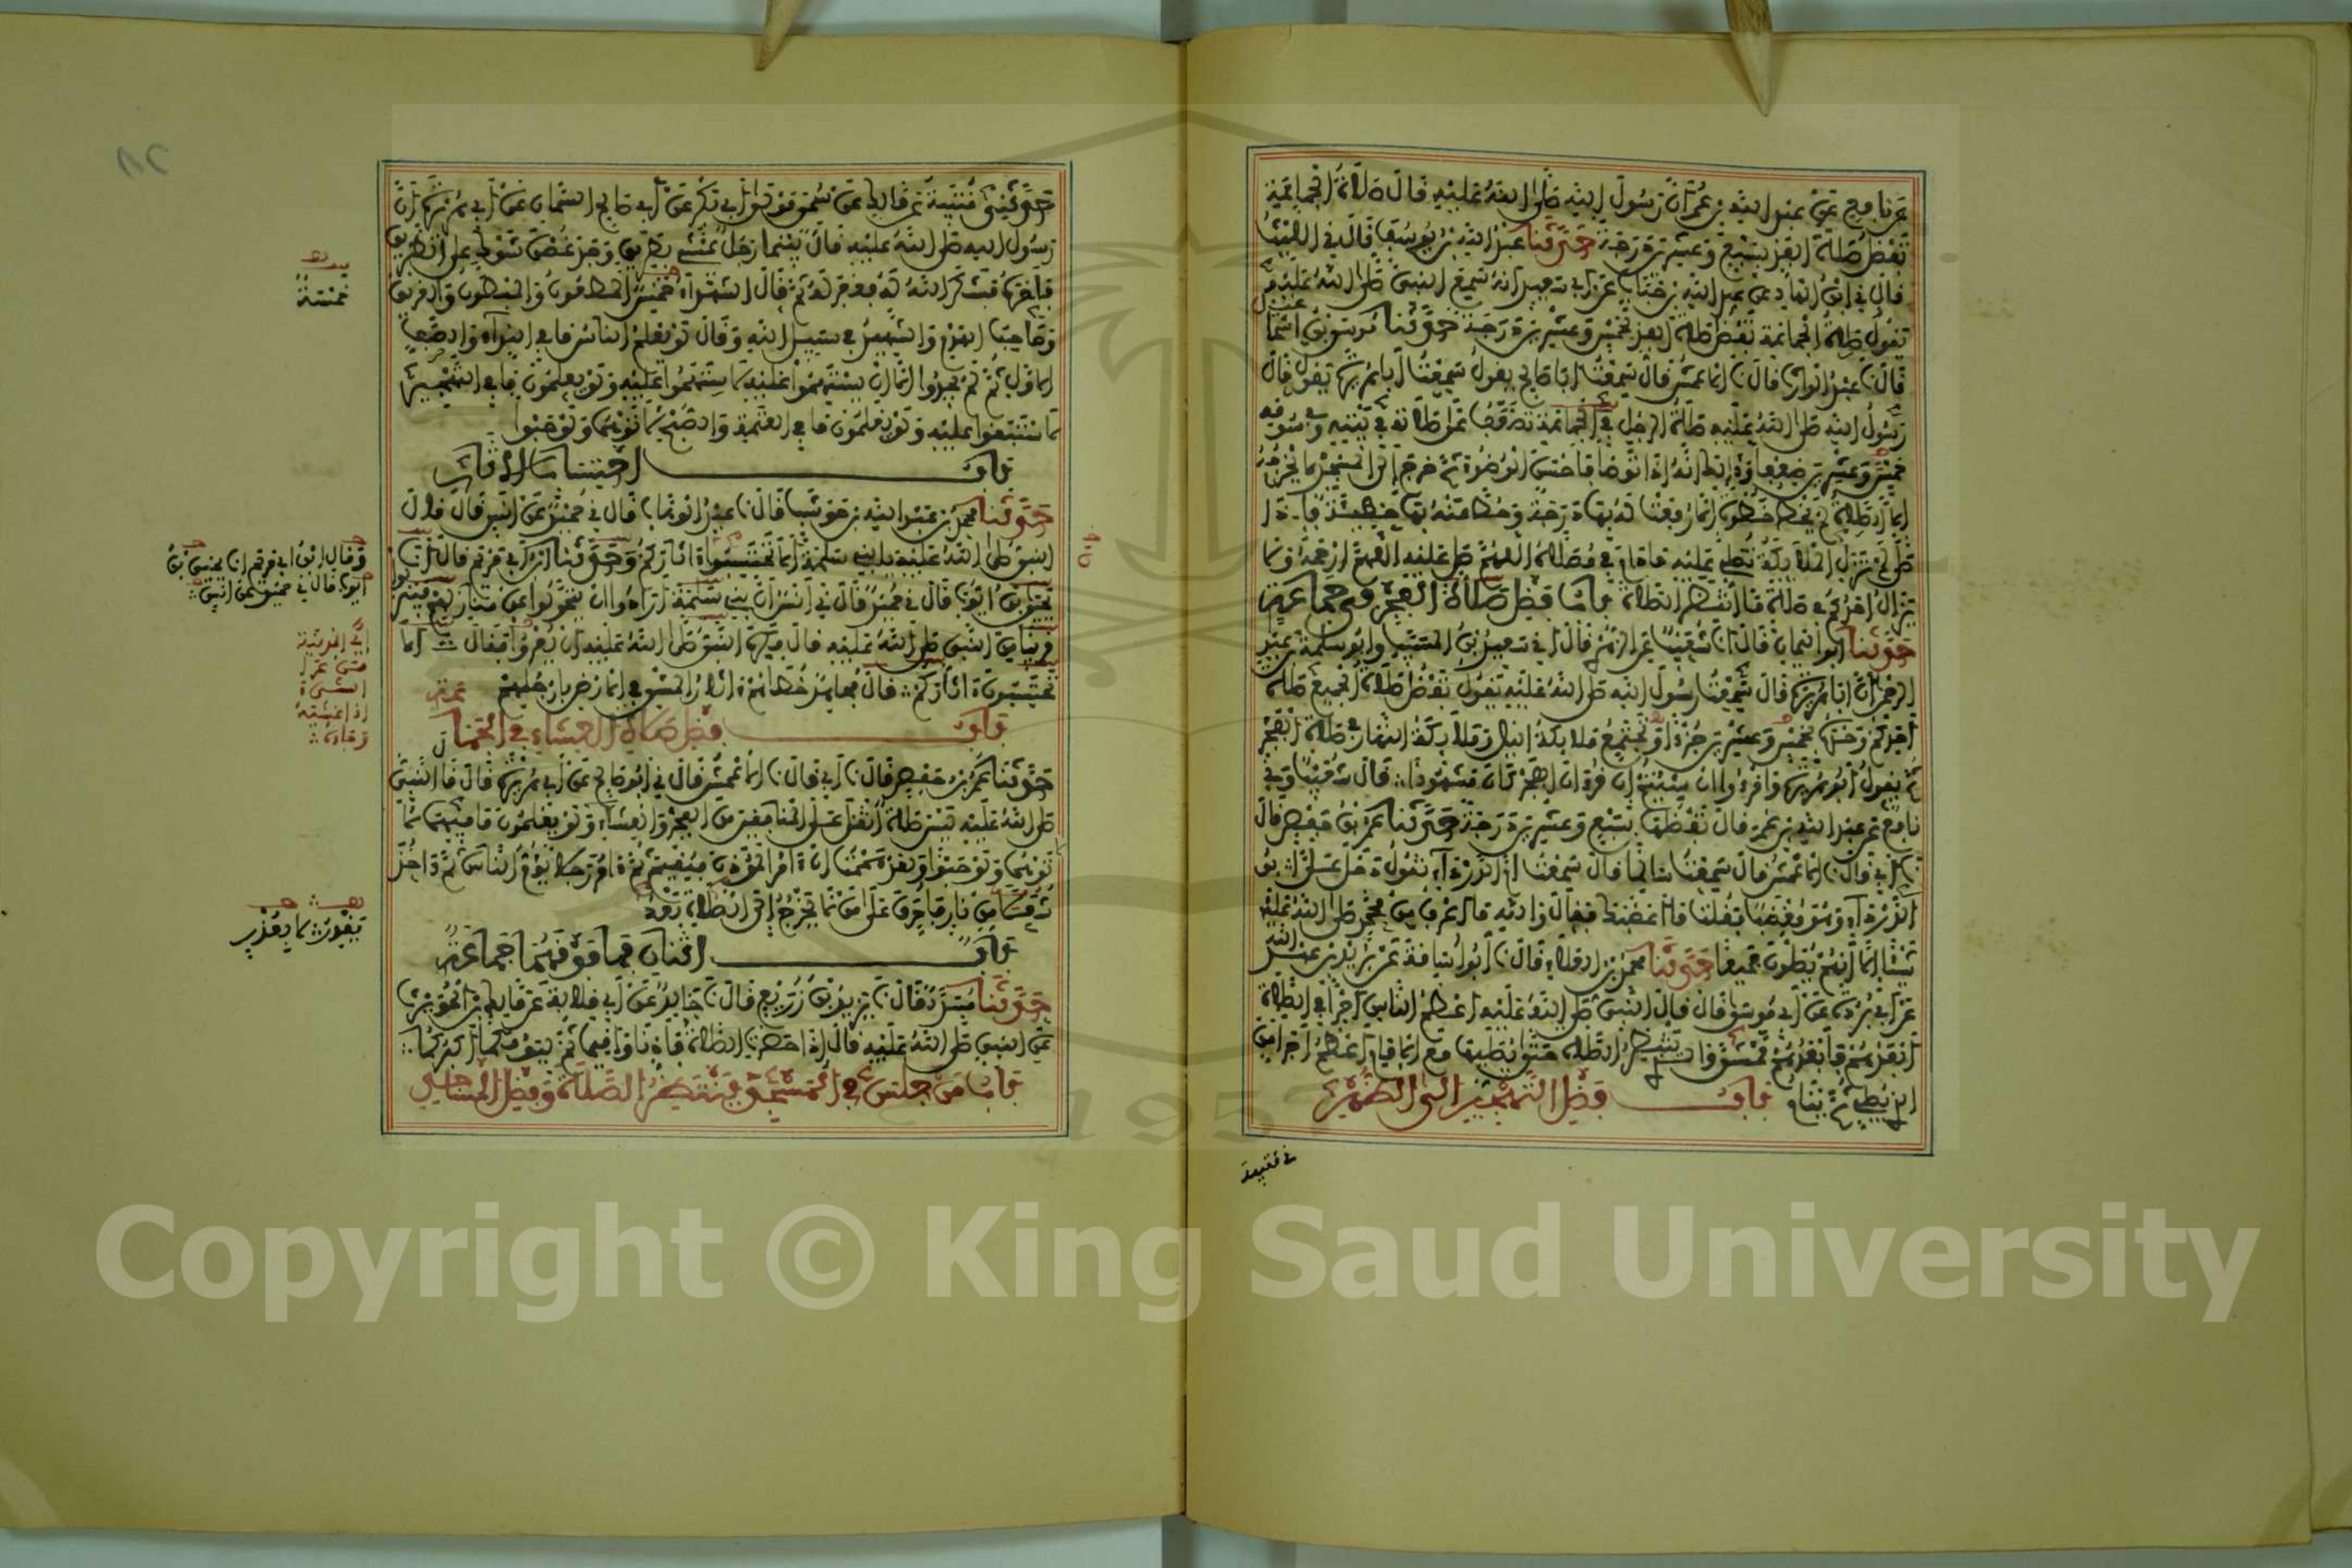 عن نافع عن عبد الله بن عمر أن رسول الله صلى الله عليه قال صلاة الجماعة
تفضل صلاة الفذ بسبع وعشرين درجة حدثنا عبد الله بن يوسف قال ني الليث
قال ني ابن الهاد عن عبد الله بن خباب عن أبي سعيد أنه سمع النبي صلى الله عليه
يقول صلاة الجماعة تفضل صلاة الفذ بخمس وعشرين درجة حدثنا موسى بن اسما
عيل قال نا عبد الواحد قال نا الأعمش قال سمعت أبا صالح يقول سمعت أبا هريرة يقول قال
رسول الله صلى الله عليه صلاة الرجل في الجماعة تضعف على صلاته في بيته وفي سوقه
خمسة وعشرين ضعفا وذلك أنه إذا توضأ فأحسن الوضوء ثم خرج إلى المسجد لا يخرجه
إلا الصلاة لم يخط خطوة إلا رفعت له بها درجة وحط عنه بها خطيئة فإذا
صلى لم تزل الملائكة تصلي عليه ما دام في مصلاه اللهم صل عليه اللهم ارحمه ولا
يزال أحدكم في صلاة ما انتظر الصلاة باب فضل صلاة الفجر في جماعة
حدثنا أبو اليمان قال أنا شعيب عن الزهري قال أني سعيد بن المسيب وأبو سلمة بن عبد
الرحمن أن أبا هريرة قال سمعت رسول الله صلى الله عليه يقول تفضل صلاة الجميع صلاة
أحدكم وحده بخمس وعشرين جزءا وتجتمع ملائكة الليل وملائكة النهار في صلاة الفجر
ثم يقول أبو هريرة واقرءوا إن شئتم إن قرآن الفجر كان مشهودا قال شعيب وني
نافع عن عبد الله بن عمر قال تفضلها بسبع وعشرين درجة حدثنا عمر بن حفص قال
نا أبي قال نا الأعمش قال سمعت سالما قال سمعت أم الدرداء تقول دخل علي أبو
الدرداء وهو مغضب فقلت ما أغضبك فقال والله ما أعرف من محمد صلى الله عليه
شيئا إلا أنهم يصلون جميعا حدثنا محمد بن العلاء قال نا أبو أسامة عن بريد بن عبد الله
عن أبي بردة عن أبي موسى قال قال النبي صلى الله عليه أعظم الناس أجرا في الصلاة
أبعدهم فأبعدهم ممشى والذي ينتظر الصلاة حتى يصليها مع الإمام أعظم أجرا من
الذي يصلي ثم ينام باب فضل التهجير إلى الظهر
حدثني قتيبة
حدثني قتيبة عن مالك عن سمي مولى أبي بكر عن أبي صالح السمان عن أبي هريرة أن
رسول الله صلى الله عليه قال بينما رجل يمشي بطريق وجد غصن شوك على الطريق
فأخره فشكر الله له فغفر له ثم قال الشهداء خمس المطعون والمبطون والغريق
وصاحب الهدم والشهيد في سبيل الله وقال لو يعلم الناس ما في النداء والصف
الأول ثم لم يجدوا إلا أن يستهموا عليه لاستهموا عليه ولو يعلمون ما في التهجير
لاستبقوا عليه ولو يعلمون ما في العتمة والصبح لأتوهما ولو حبوا
باب احتساب الآثار
حدثنا محمد بن عبد الله بن حوشب قال نا عبد الوهاب قال ني حميد عن أنس قال قال
النبي صلى الله عليه يا بني سلمة ألا تحتسبون آثاركم وحدثنا ابن أبي مريم قال أنا
يحيى بن أيوب قال ني حميد قال ني أنس أن بني سلمة أرادوا أن يتحولوا عن منازلهم فينزلوا
قريبا من النبي صلى الله عليه قال فكره النبي صلى الله عليه أن يعروا فقال ألا
تحتسبون آثاركم قال مجاهد خطاهم آثار المشي في الأرض بأرجلهم
باب فضل صلاة العشاء في الجماعة
حدثنا عمر بن حفص قال نا أبي قال نا الأعمش قال ني أبو صالح عن أبي هريرة قال قال النبي
صلى الله عليه ليس صلاة أثقل على المنافقين من الفجر والعشاء ولو يعلمون ما فيهما
لأتوهما ولو حبوا ولقد هممت أن آمر المؤذن فيقيم ثم آمر رجلا يؤم الناس ثم آخذ
شعلا من نار فأحرق على من لا يخرج إلى الصلاة بعد
باب اثنان فما فوقهما جماعة
حدثنا مسدد قال نا يزيد بن زريع قال نا خالد عن أبي قلابة عن مالك بن الحويرث
عن النبي صلى الله عليه قال إذا حضرت الصلاة فأذنا وأقيما ثم ليؤمكما أكبركما
باب من جلس في المسجد ينتظر الصلاة وفضل المساجد
خمسة
وقال ابن أبي مريم أنا يحيى بن
أيوب قال ني حميد عن أنس
يقدر لا يعذر
Copyright © King Saud University
1957